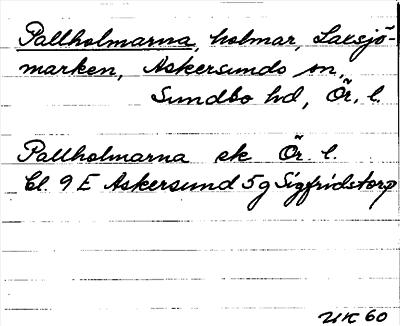 Pallholmarna, holmar, Laxsjö-
marken, Askersunds sn,
Sundbo hd, Ör. l.
Pallholmarna ek Ör. l.
bl. 9 E Askersund 5g Sigfridstorp
UK 60